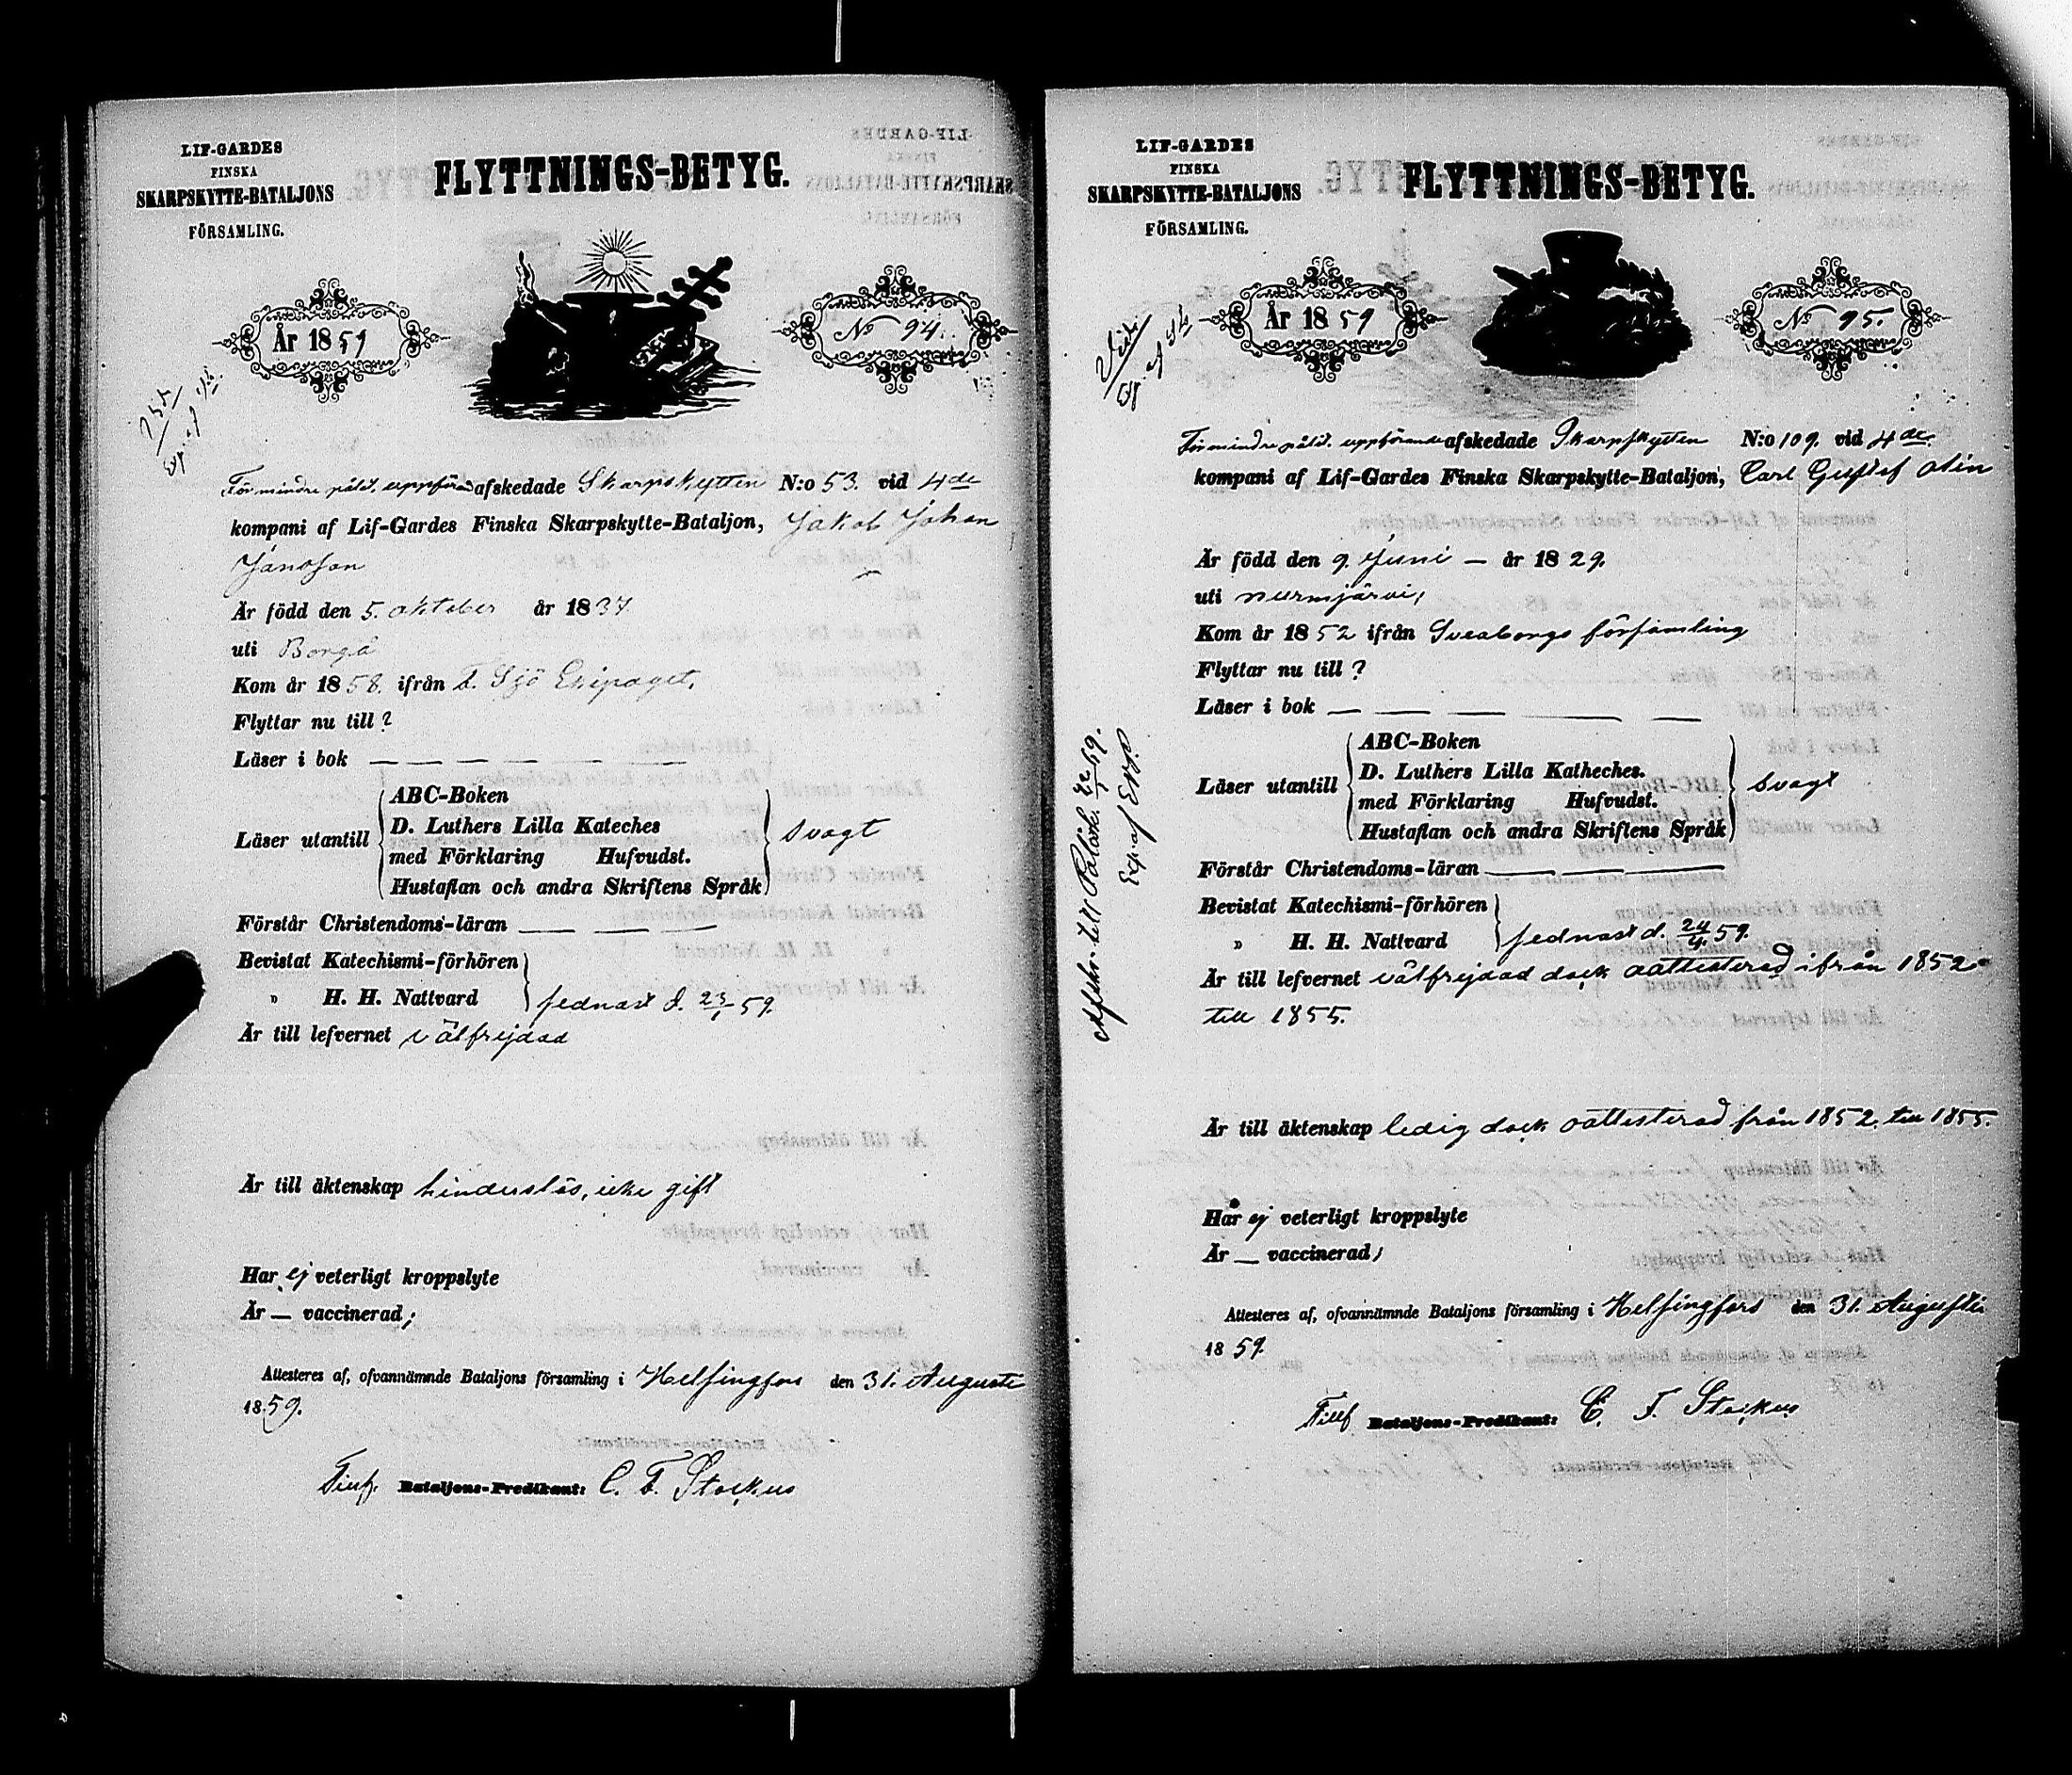 LIF-GARDES
FINSKA
SKARPSKYTTE-BATALJONS
FÖRSAMLING.
FLYTTNINGS-BETYG.
År 1859
No 94.
För mindre pålit. uppförande afskedade Skarpskytten N:o 53. vid 4de
kompani af Lif-Gardes Finska Skarpskytte-Bataljon, Jakob Johan
Jansson
Är född den 5. oktober år 1837.
uti Borgå
Kom år 1858. ifrån F. Sjö Ekipaget.
Flyttar nu till?
Läser i bok — — — — — —
Läser utantill
ABC-Boken
D. Luthers Lilla Kateches
med Förklaring Hufvudst.
Hustaflan och andra Skriftens Språk
svagt
Förstår Christendoms-läran — — —
Bevistat Katechismi-förhören
" H. H. Nattvard
sednast d. 23/1 59.
Är till lefvernet välfrejdad
Är till äktenskap hinderslös, icke gift
Har ej veterligt kroppslyte
Är — vaccinerad;
Attesteres af, ofvannämnde Bataljons församling i Helsingfors den 31. Augusti
1859.
Tillf. Bataljons-Predikant: C. F. Stockus
LIF-GARDES
FINSKA
SKARPSKYTTE-BATALJONS
FÖRSAMLING.
FLYTTNINGS-BETYG.
År 1859
No 95.
För mindre pålit. uppförande afskedade Skarpskytten N:o 109. vid 4de
kompani af Lif-Gardes Finska Skarpskytte-Bataljon, Carl Gustaf Alin
Är född den 9. Juni — år 1829.
uti Nurmijärvi,
Kom år 1852 ifrån Sveaborgs församling
Flyttar nu till?
Läser i bok — — — — —
Läser utantill
ABC-Boken
D. Luthers Lilla Katheches.
med Förklaring Hufvudst.
Hustaflan och andra Skriftens Språk
svagt
Förstår Christendoms-läran — — —
Bevistat Katechismi-förhören
" H. H. Nattvard
sednast d. 24/4 59.
Är till lefvernet välfrejdad dock oattesterad ifrån 1852
till 1855.
Är till äktenskap ledig dock oattesterad från 1852. till 1855.
Har ej veterligt kroppslyte
Är — vaccinerad;
Attesteres af, ofvannämnde Bataljons församling i Helsingfors den 31. Augusti
1859.
Tillf Bataljons-Predikant: C. F. Stockus